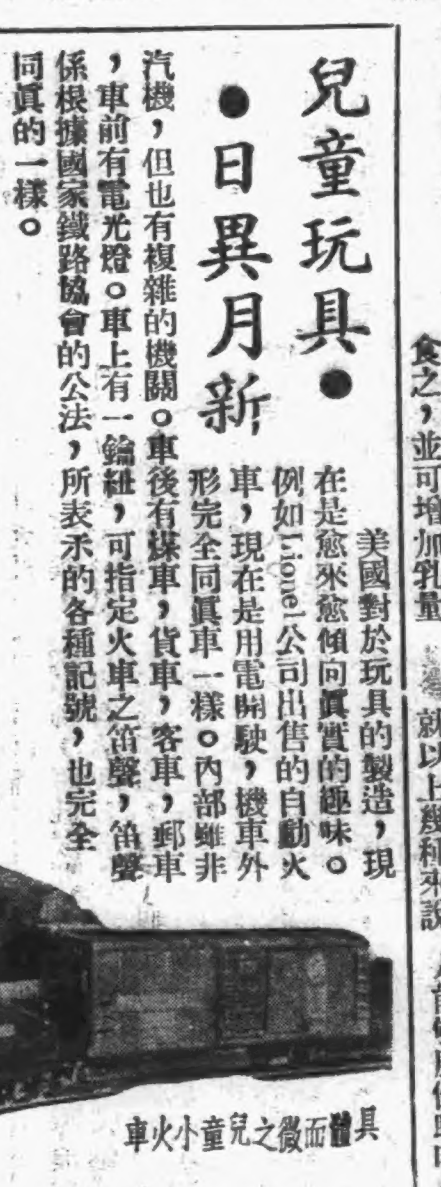 食之，並可增加乳量
就以上幾種來說
兒童玩具●
●日異月新
美國對於玩具的製造，現
在是愈來愈傾向眞實的趣味。
例如Lionel公司出售的自動火
車，現在是用電開駛，機車外
形完全同眞車一樣。內部雖非
汽機，但也有複雜的機關。車後有煤車，貨車，客車，郵車
，車前有電光燈。車上有一鑰紐，可指定火車之笛聲，笛聲
係根據國家鐵路協會的公法，所表示的各種記號，也完全
同眞的一樣。
具體而微之兒童小火車